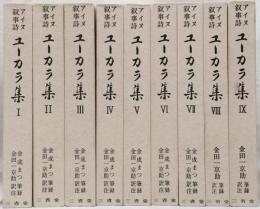 アイヌ
叙事詩
ユーカラ集
I
金成まつ 筆録
金田一京助 訳注
三省堂
アイヌ
叙事詩
ユーカラ集
II
金成まつ 筆録
金田一京助 訳注
三省堂
アイヌ
叙事詩
ユーカラ集
III
金成まつ 筆録
金田一京助 訳注
三省堂
アイヌ
叙事詩
ユーカラ集
IV
金成まつ 筆録
金田一京助 訳注
三省堂
アイヌ
叙事詩
ユーカラ集
V
金成まつ 筆録
金田一京助 訳注
三省堂
アイヌ
叙事詩
ユーカラ集
VI
金成まつ 筆録
金田一京助 訳注
三省堂
アイヌ
叙事詩
ユーカラ集
VII
金成まつ 筆録
金田一京助 訳注
三省堂
アイヌ
叙事詩
ユーカラ集
VIII
金田一京助
筆録
訳注
三省堂
アイヌ
叙事詩
ユーカラ集
IX
金田一京助
筆録
訳注
三省堂